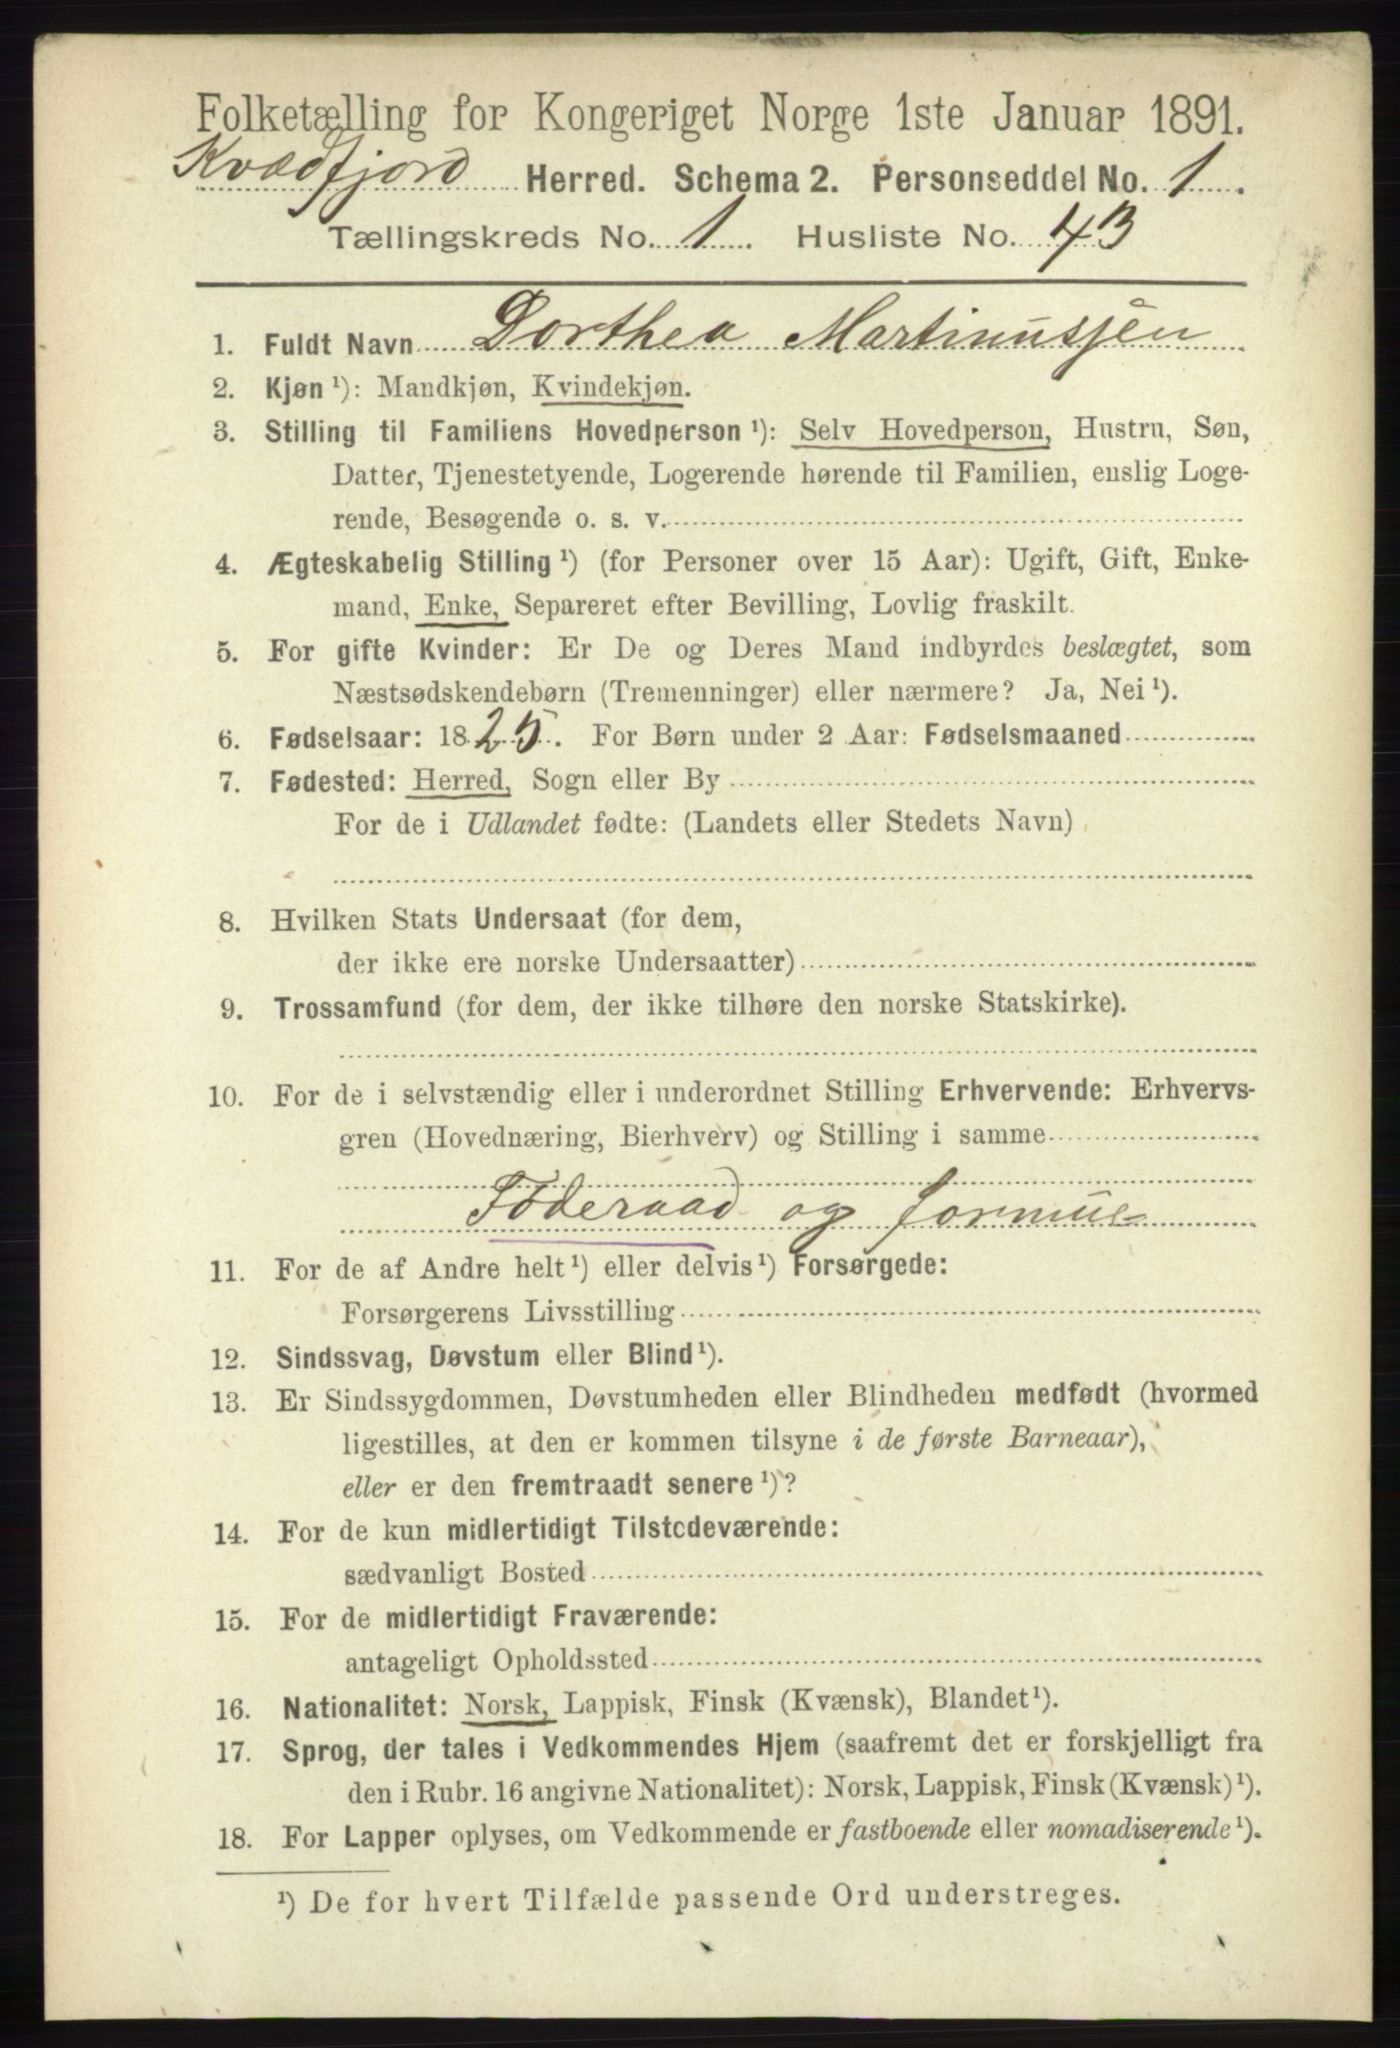 Folketælling for Kongeriget Norge 1ste Januar 1891.
Kvædfjord Herred. Schema 2. Personseddel No. 1.
Tællingskreds No. 1. Husliste No. 43
1. Fuldt Navn Dorthea Martinussen
2. Kjøn ¹): Mandkjøn, Kvindekjøn.
3. Stilling til Familiens Hovedperson ¹): Selv Hovedperson, Hustru, Søn,
Datter, Tjenestetyende, Logerende hørende til Familien, enslig Loge-
rende, Besøgende o. s. v.
4. Ægteskabelig Stilling ¹) (for Personer over 15 Aar): Ugift, Gift, Enke-
mand, Enke, Separeret efter Bevilling, Lovlig fraskilt.
5. For gifte Kvinder: Er De og Deres Mand indbyrdes beslægtet, som
Næstsødskendebørn (Tremenninger) eller nærmere? Ja, Nei ¹).
6. Fødselsaar: 1825. For Børn under 2 Aar: Fødselsmaaned
7. Fødested: Herred, Sogn eller By
For de i Udlandet fødte: (Landets eller Stedets Navn)
8. Hvilken Stats Undersaat (for dem,
der ikke ere norske Undersaatter)
9. Trossamfund (for dem, der ikke tilhøre den norske Statskirke).
10. For de i selvstændig eller i underordnet Stilling Erhvervende: Erhvervs-
gren (Hovednæring, Bierhverv) og Stilling i samme
Föderaad og formue
11. For de af Andre helt ¹) eller delvis ¹) Forsørgede:
Forsørgerens Livsstilling
12. Sindssvag, Døvstum eller Blind ¹).
13. Er Sindssygdommen, Døvstumheden eller Blindheden medfødt (hvormed
ligestilles, at den er kommen tilsyne i de første Barneaar),
eller er den fremtraadt senere ¹)?
14. For de kun midlertidigt Tilstedeværende:
sædvanligt Bosted
15. For de midlertidigt Fraværende:
antageligt Opholdssted
16. Nationalitet: Norsk, Lappisk, Finsk (Kvænsk), Blandet ¹).
17. Sprog, der tales i Vedkommendes Hjem (saafremt det er forskjelligt fra
den i Rubr. 16 angivne Nationalitet): Norsk, Lappisk, Finsk (Kvænsk) ¹).
18. For Lapper oplyses, om Vedkommende er fastboende eller nomadiserende ¹).
¹) De for hvert Tilfælde passende Ord understreges.